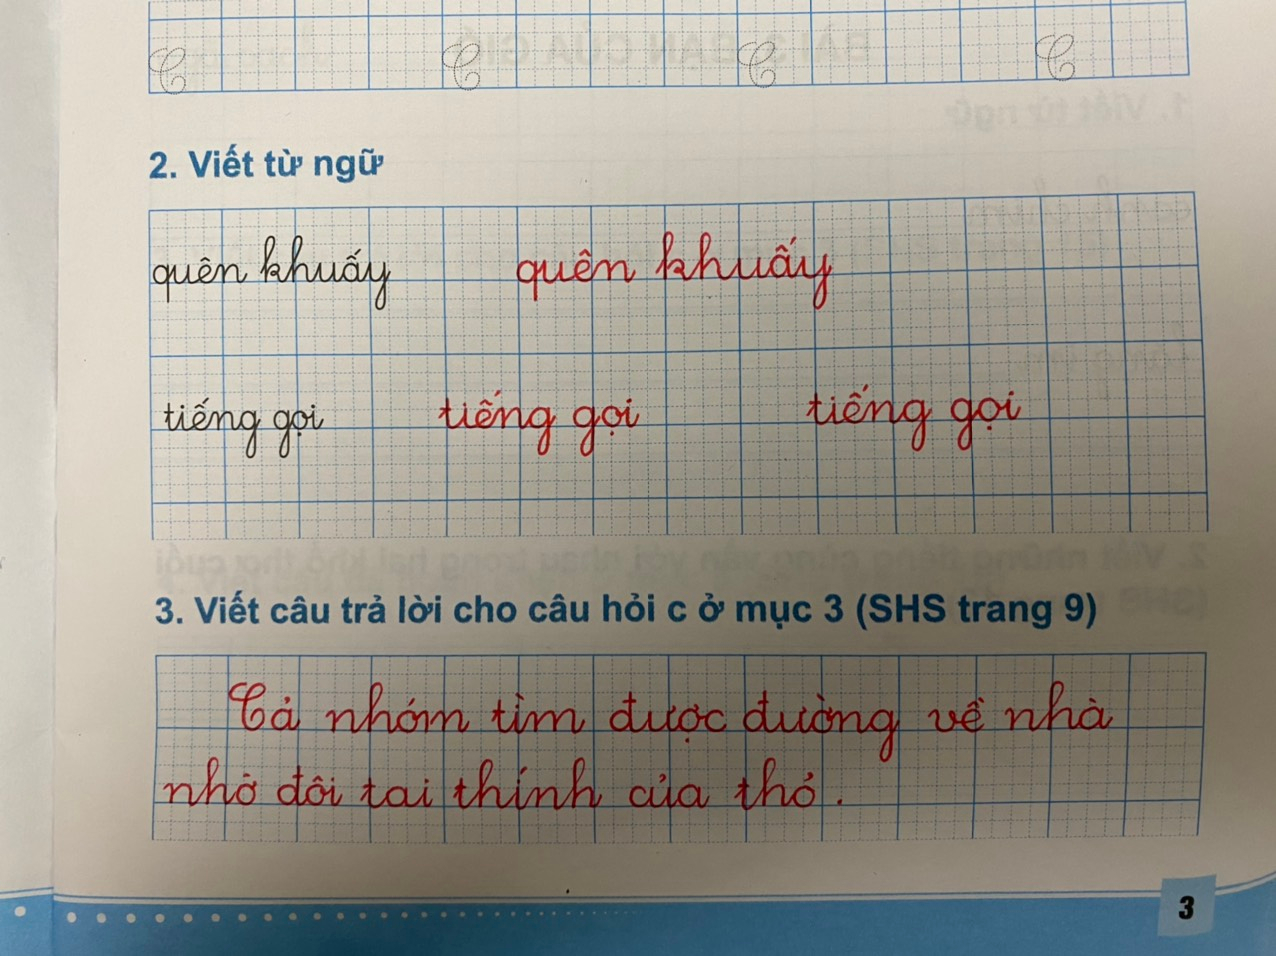 C C C C
2. Viết từ ngữ
quên khuấy quên khuấy
tiếng gọi tiếng gọi tiếng gọi
3. Viết câu trả lời cho câu hỏi c ở mục 3 (SHS trang 9)
Cả nhóm tìm được đường về nhà
nhờ đôi tai thính của thỏ.
3